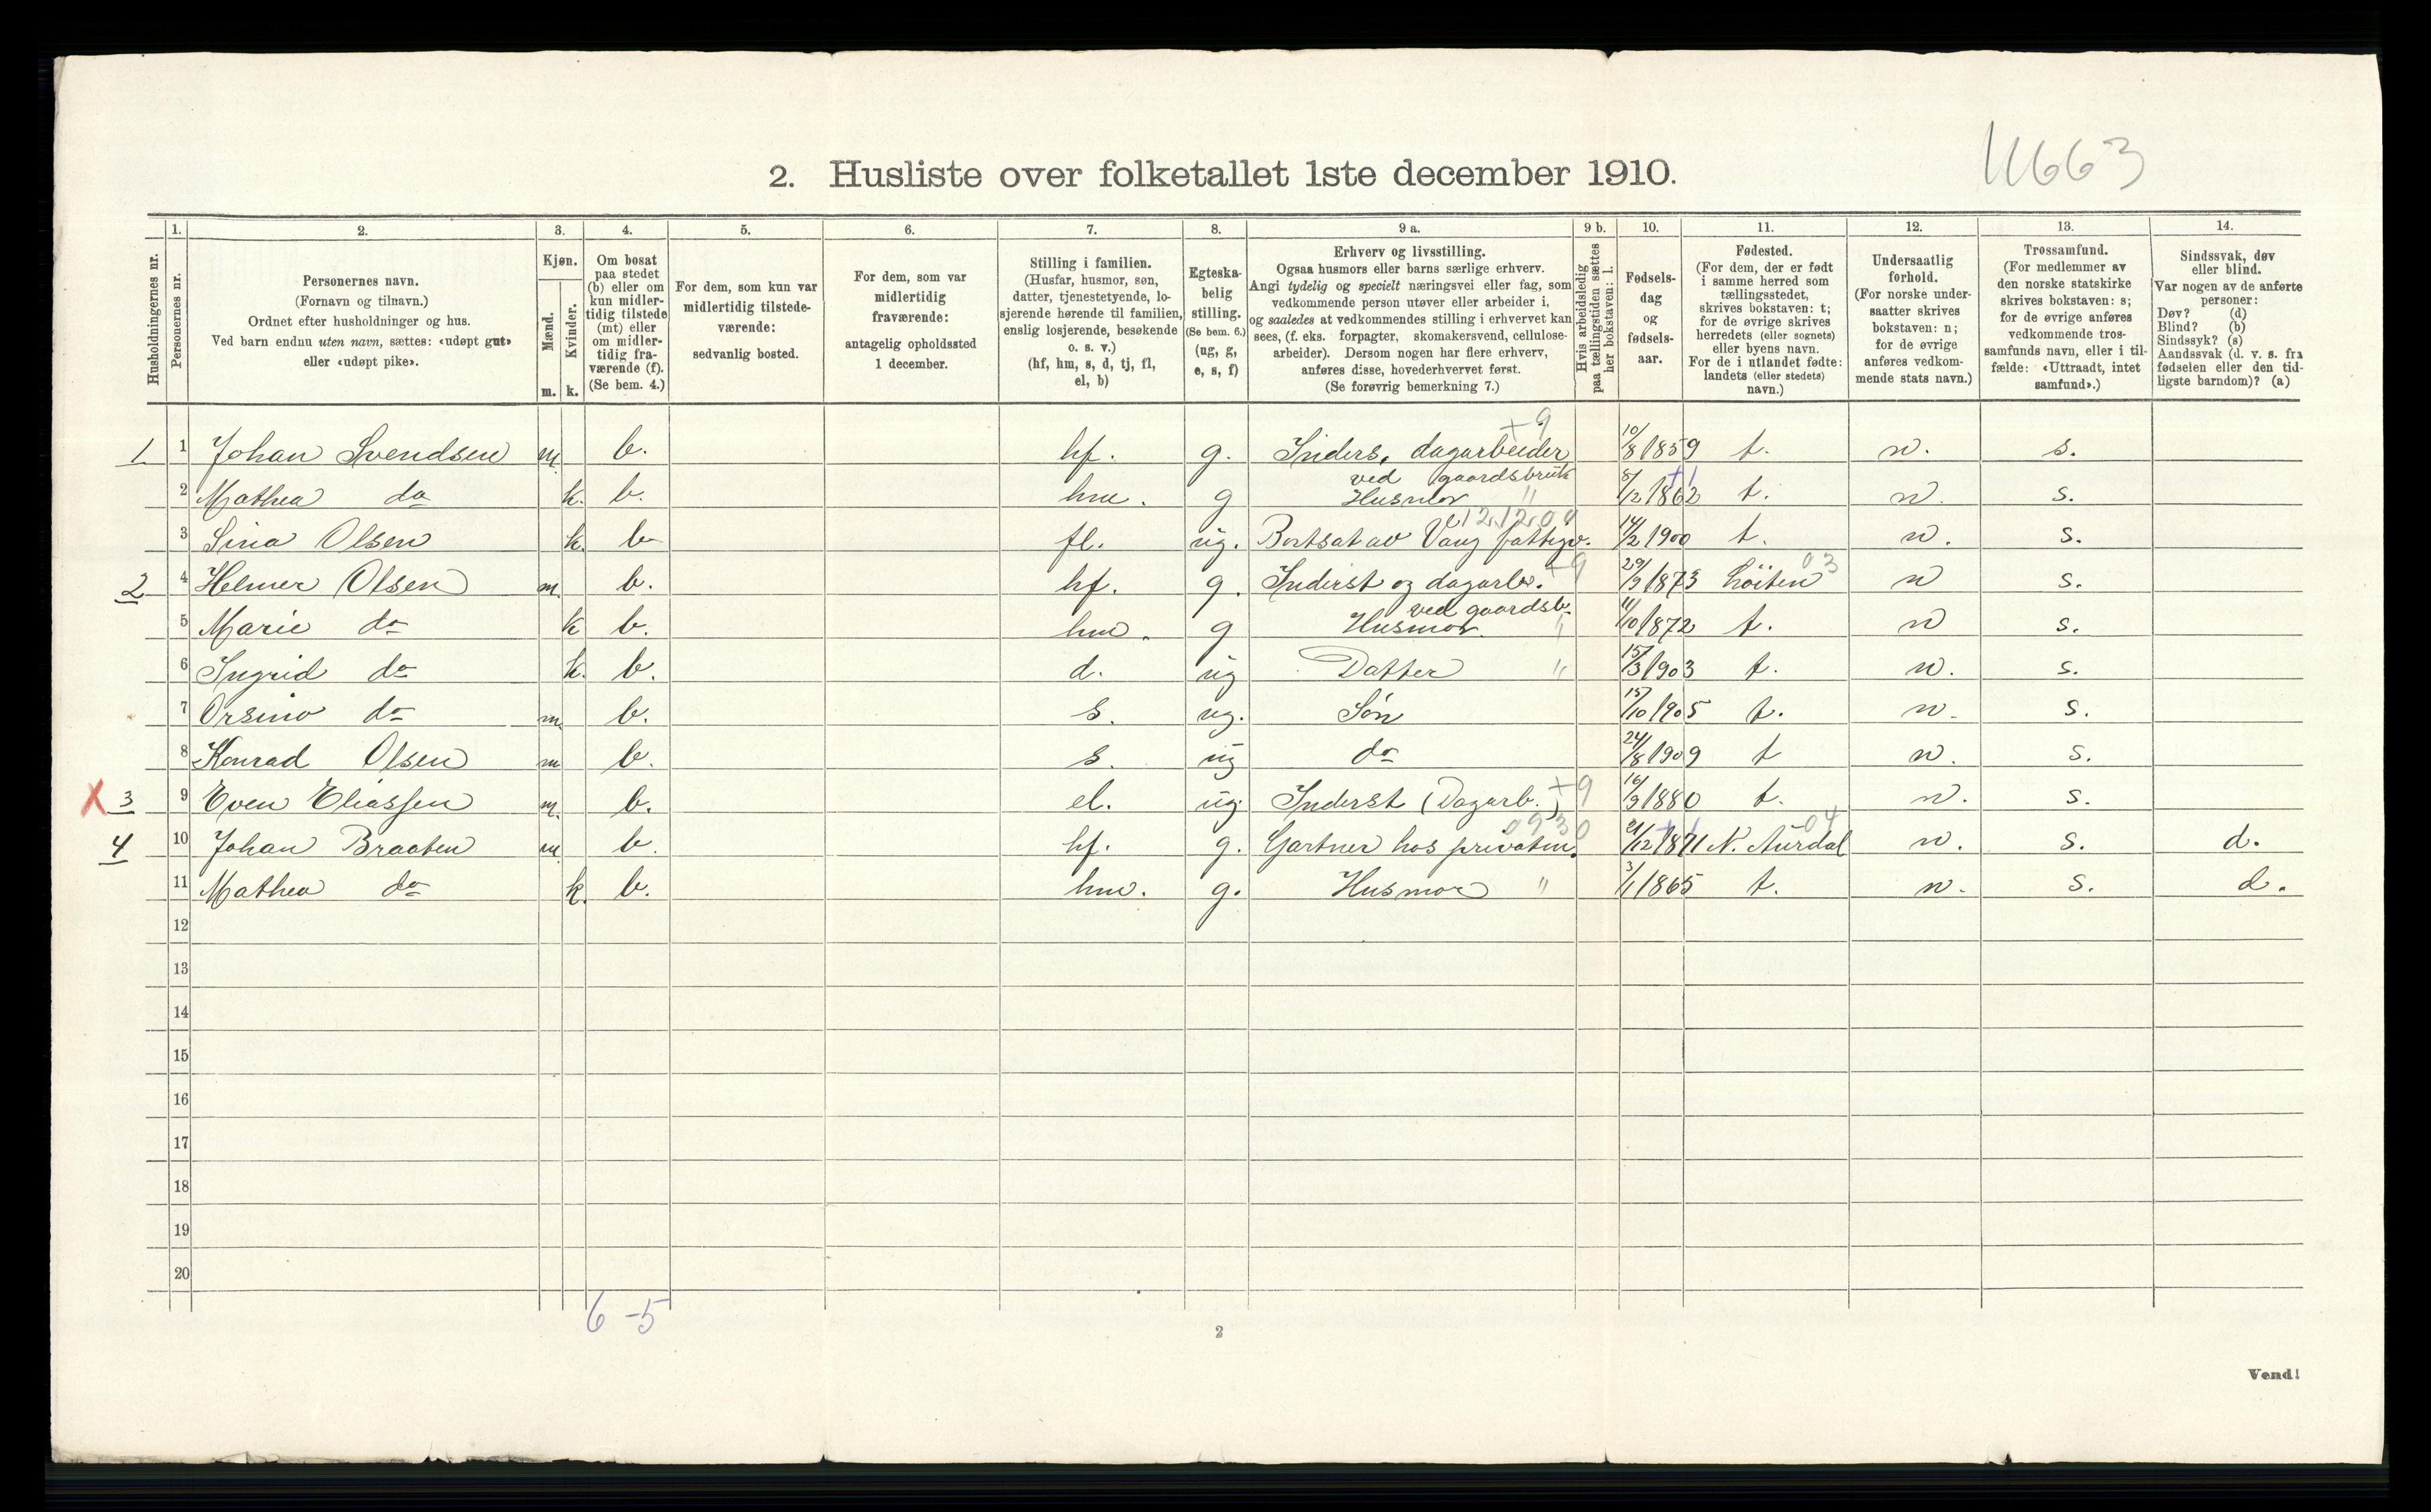 11663
2. Husliste over folketallet 1ste december 1910.
Husholdningernes nr.
1. Personernes nr.
2. Personernes navn.
(Fornavn og tilnavn.)
Ordnet efter husholdninger og hus.
Ved barn endnu uten navn, sættes: «udøpt gut»
eller «udøpt pike».
3. Kjøn.
Mænd. m.
Kvinder. k.
4. Om bosat
paa stedet
(b) eller om
kun midler-
tidig tilstede
(mt) eller
om midler-
tidig fra-
værende (f).
(Se bem. 4.)
5. For dem, som kun var
midlertidig tilstede-
værende:
sedvanlig bosted.
6. For dem, som var
midlertidig
fraværende:
antagelig opholdssted
1 december.
7. Stilling i familien.
(Husfar, husmor, søn,
datter, tjenestetyende, lo-
sjerende hørende til familien,
enslig losjerende, besøkende
o. s. v.)
(hf, hm, s, d, tj, fl,
el, b)
8. Egteska-
belig
stilling.
(Se bem. 6.)
(ug, g,
e, s, f)
9 a. Erhverv og livsstilling.
Ogsaa husmors eller barns særlige erhverv.
Angi tydelig og specielt næringsvei eller fag, som
vedkommende person utøver eller arbeider i,
og saaledes at vedkommendes stilling i erhvervet kan
sees, (f. eks. forpagter, skomakersvend, cellulose-
arbeider). Dersom nogen har flere erhverv,
anføres disse, hovederhvervet først.
(Se forøvrig bemerkning 7.)
9 b. Hvis arbeidsledig
paa tællingstiden sættes
her bokstaven: l.
10. Fødsels-
dag
og
fødsels-
aar.
11. Fødested.
(For dem, der er født
i samme herred som
tællingsstedet,
skrives bokstaven: t;
for de øvrige skrives
herredets (eller sognets)
eller byens navn.
For de i utlandet fødte:
landets (eller stedets)
navn.)
12. Undersaatlig
forhold.
(For norske under-
saatter skrives
bokstaven: n;
for de øvrige
anføres vedkom-
mende stats navn.)
13. Trossamfund.
(For medlemmer av
den norske statskirke
skrives bokstaven: s;
for de øvrige anføres
vedkommende tros-
samfunds navn, eller i til-
fælde: «Uttraadt, intet
samfund».)
14. Sindssvak, døv
eller blind.
Var nogen av de anførte
personer:
Døv? (d)
Blind? (b)
Sindssyk? (s)
Aandssvak (d. v. s. fra
fødselen eller den tid-
ligste barndom)? (a)
+9
1 1 Johan Svendsen m. b. hf. g. Inders, dagarbeider 10/8 1859 t. n. s.
ved gaardsbruk
2 Mathea do k. b. hm. g Husmor " 8/12 1862 t. n. s.
12.12.04
3 Sina Olsen k. b fl. ug. Bortsat av Vang fattigv. 14/2 1900 t. n. s.
+9 03
2 4 Helmer Olsen m. b. hf. g. Inderst og dagarb. 29/9 1873 Löiten n s.
ved gaardsb.
5 Marie do k b. hm. g Husmor. " 11/10 1872 t. n s.
6 Ingrid do k. b. d. ug Datter " 15/3 1903 t. n. s.
7 Orsino do m. b. s. ug. Søn 15/10 1905 t. n. s.
8 Konrad Olsen m b. s. ug do 24/8 1909 t n. s.
X 3 9 Even Eliassen m. b. el. ug. Inderst (Dagarb.) +9 16/9 1880 t. n. s.
0930 04
4 10 Johan Braaten m b. hf. g. Gartner hos privatm. 21/12 1871 N. Aurdal n. s. d.
11 Mathea do k. b. hm. g. Husmor " 3/1 1865 t. n. s. d.
12
13
14
15
16
17
18
19
20
6-5
2
Vend!